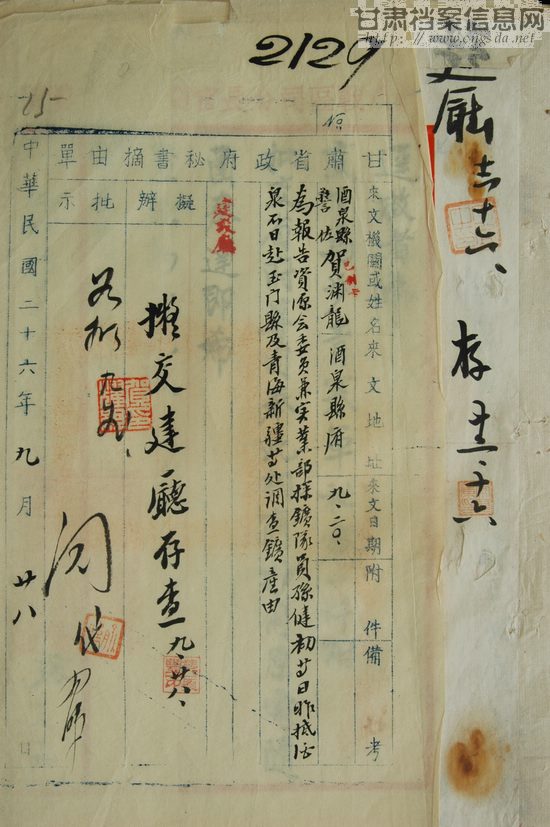 甘肃档案信息网
http://www.cngsda.net
2129
存
甘肅省政府秘書摘由單
來文機關或姓名
來文地址
來文日期
附件
備考
酒泉縣
警佐
賀淵龍
酒泉縣府
九、二〇、
為報告資源会委員兼实業部探鑛隊員孫健初等日昨抵酒
泉不日赴玉门縣及青海新疆等处调查鑛產由
擬辦
批示
建設廳
擬交建廳存查
九、廿八、
中華民國二十六年九月廿八日